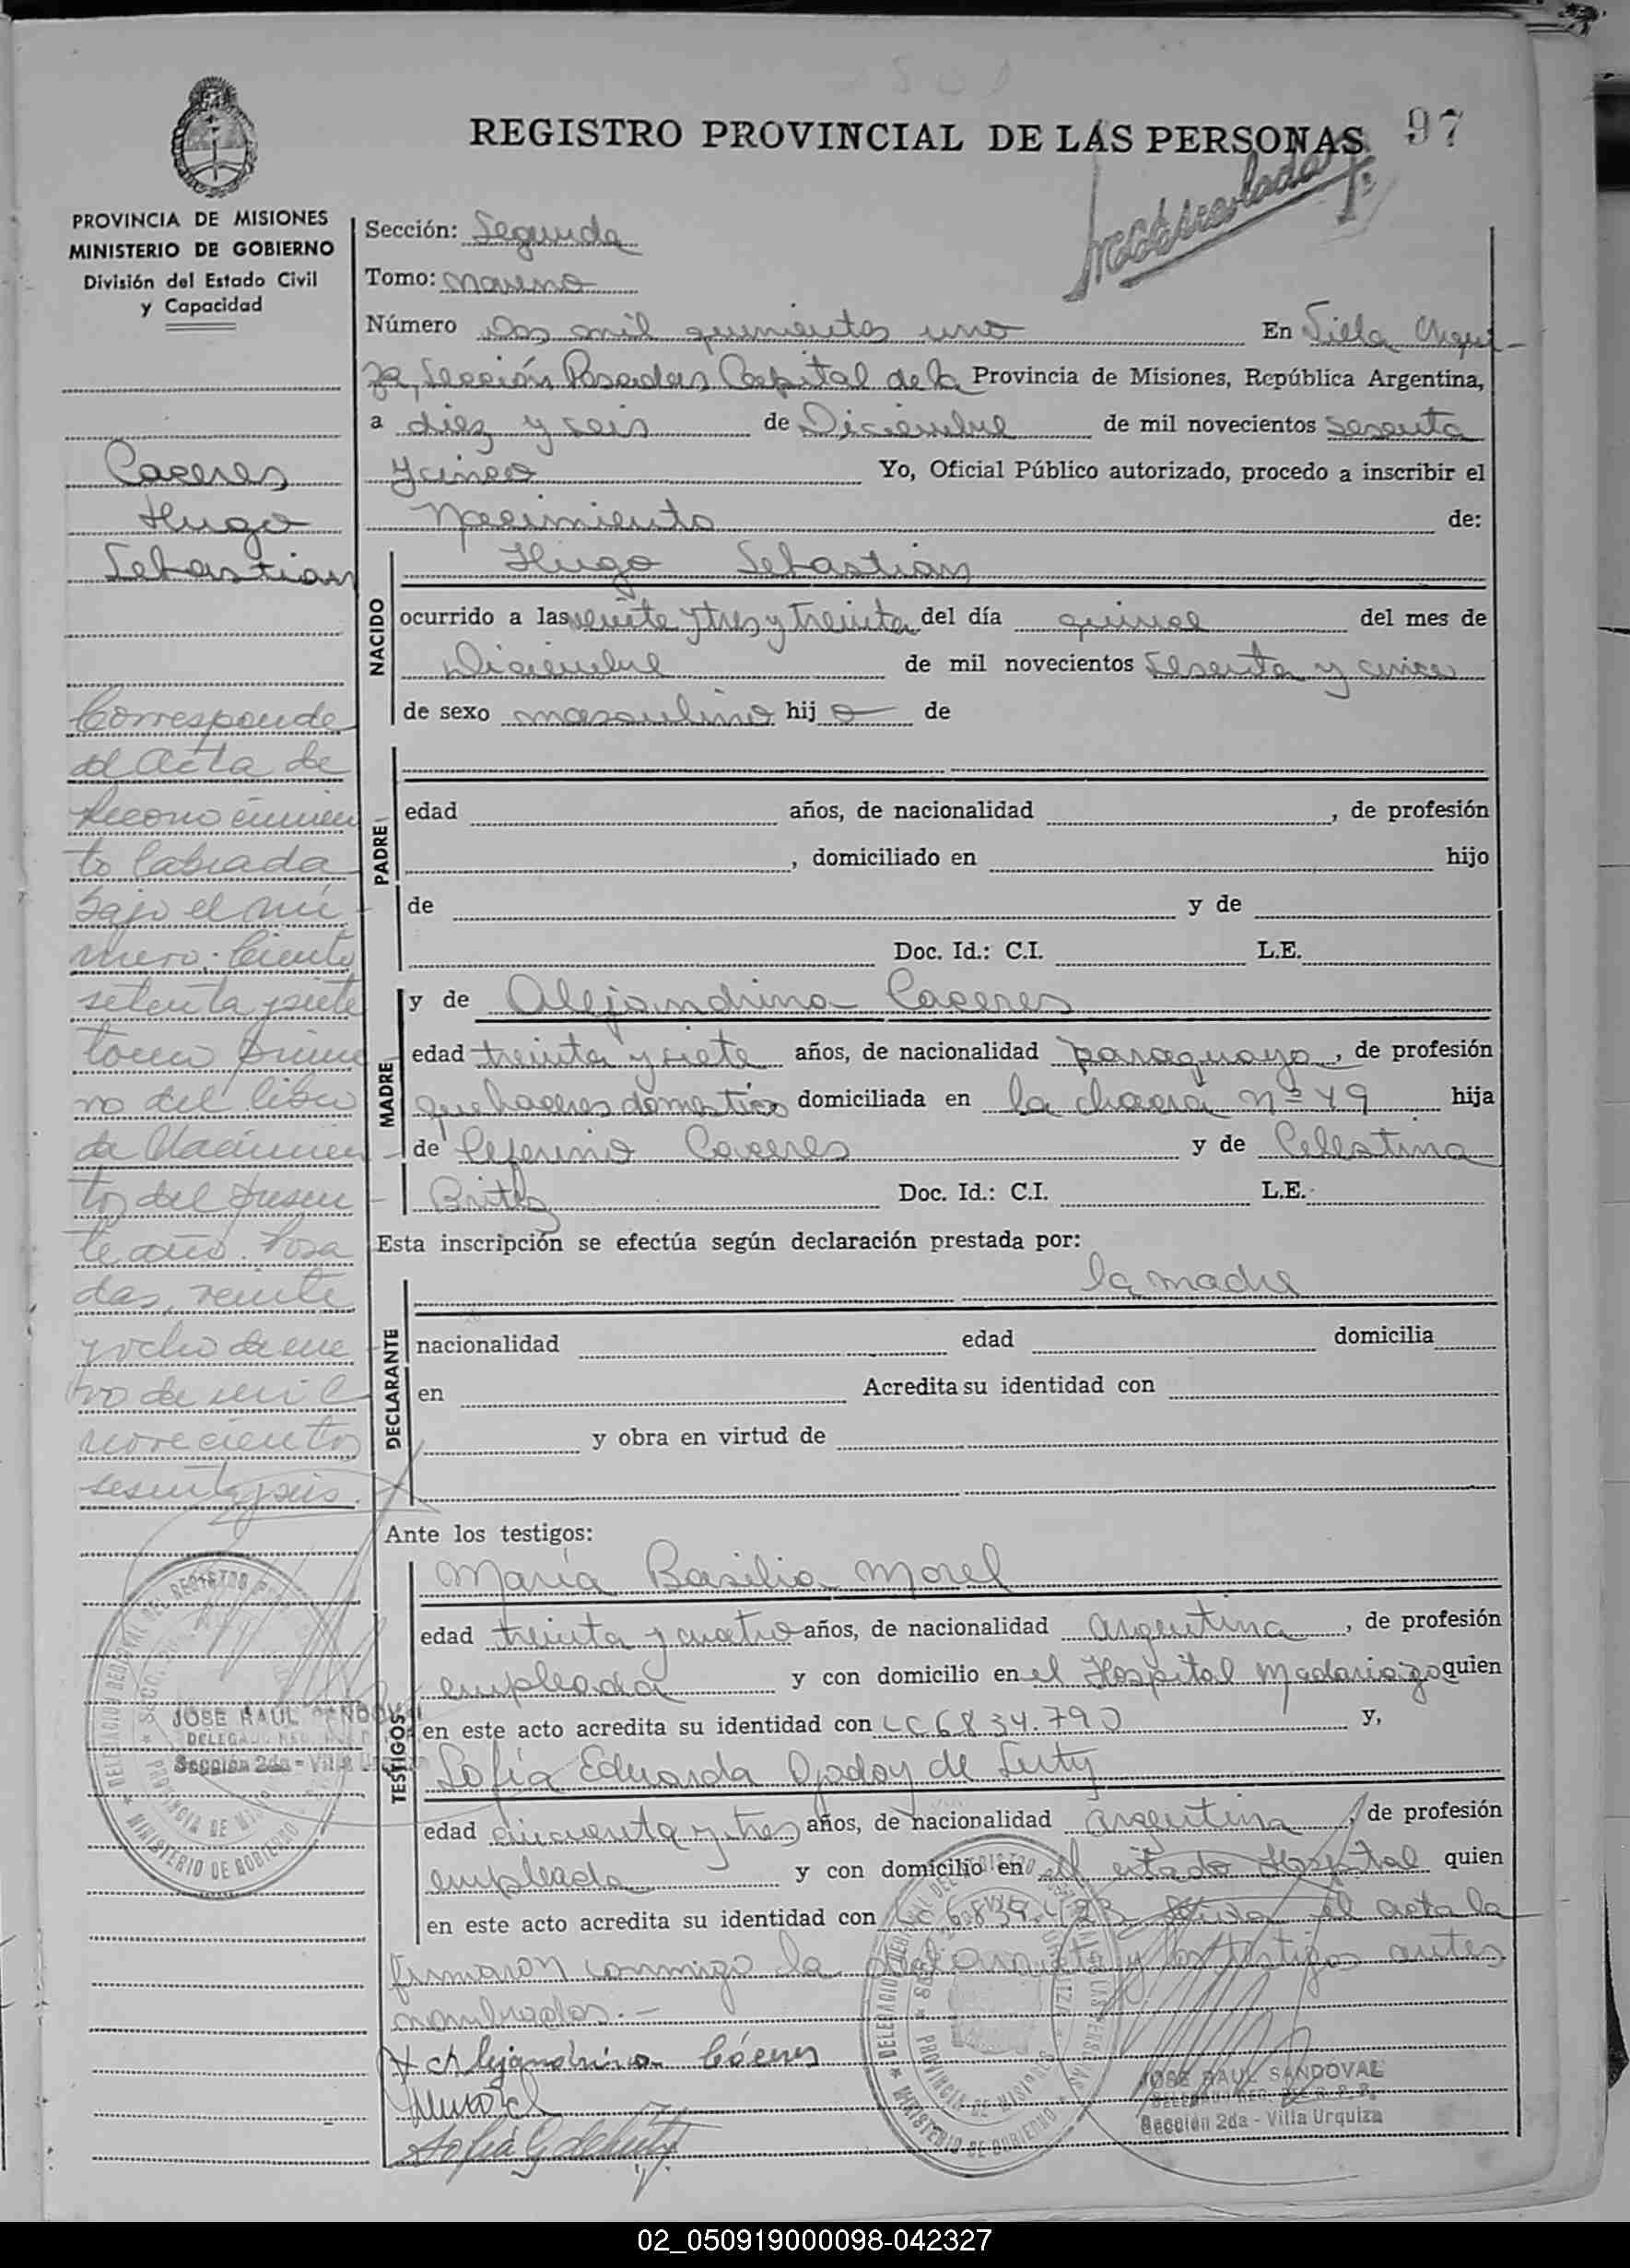 97
REGISTRO PROVINCIAL DE LAS PERSONAS
PROVINCIA DE MISIONES
MINISTERIO DE GOBIERNO
División del Estado Civil
y Capacidad
Caceres
Hugo
Sebastian
Corresponde
al Acta de
Reconocimien
to labrada
bajo el nú
mero: Ciento
setenta y siete
tomo prime
ro del libro
de Nacimien
tos del presen
te año. Posa
das, veinte
y ocho de ene
ro de mil
novecientos
sesenta y seis.
JOSE RAUL SANDOVAL
Sección 2da - Villa Urquiza
Sección: Segunda
Tomo: Noveno
Número Dos mil quinientos uno En Villa Urqui-
za, Sección Posadas Capital de la Provincia de Misiones, República Argentina,
a diez y seis de Diciembre de mil novecientos sesenta
y cinco Yo, Oficial Público autorizado, procedo a inscribir el
Nacimiento de:
NACIDO
Hugo Sebastian
ocurrido a las veinte y tres y treinta del día quince del mes de
Diciembre de mil novecientos sesenta y cinco
de sexo masculino hij o de
PADRE
edad años, de nacionalidad , de profesión
, domiciliado en hijo
de y de
Doc. Id.: C.I. L.E.
MADRE
y de Alejandrina Caceres
edad treinta y siete años, de nacionalidad paraguaya, de profesión
quehaceres domesticos domiciliada en la chacra nº 49 hija
de Ceferino Caceres y de Celestina
Britez Doc. Id.: C.I. L.E.
Esta inscripción se efectúa según declaración prestada por:
la madre
DECLARANTE
nacionalidad edad domicilia
en Acredita su identidad con
y obra en virtud de
Ante los testigos:
TESTIGOS
María Basilia Morel
edad treinta y cuatro años, de nacionalidad argentina, de profesión
empleada y con domicilio en el Hospital Madariaga quien
en este acto acredita su identidad con LC 6.834.790 y,
Sofía Eduarda Godoy de
edad cincuenta y tres años, de nacionalidad argentina, de profesión
empleada y con domicilio en el citado Hospital quien
en este acto acredita su identidad con el acta la
firmaron conmigo la declarante y los testigos antes
nombrados.-
Alejandrina Cáceres
JOSE RAUL SANDOVAL
Sección 2da - Villa Urquiza
DELEGACION
PROVINCIA DE MISIONES
MINISTERIO DE GOBIERNO
02_050919000098-042327